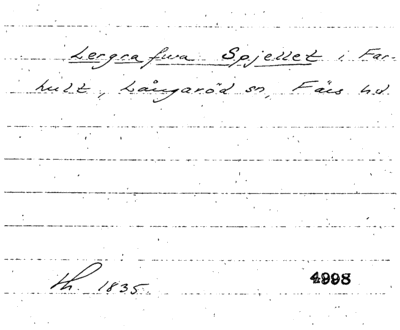 Lergrafwa Spjellet i Far-
hult, Långaröd sn, Färs hd.
th. 1835.
4998